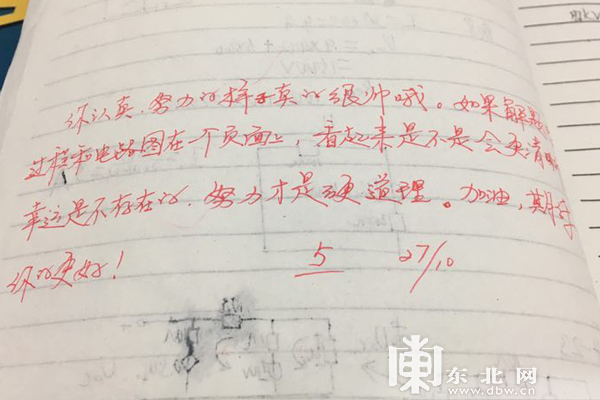 你认真、努力的样子真的很帅哦。如果解题
过程和电路图在一个页面上，看起来是不是会更清晰
幸运是不存在的，努力才是硬道理。加油，期待
你的更好！
5 27/10
东北网
www.dbw.cn